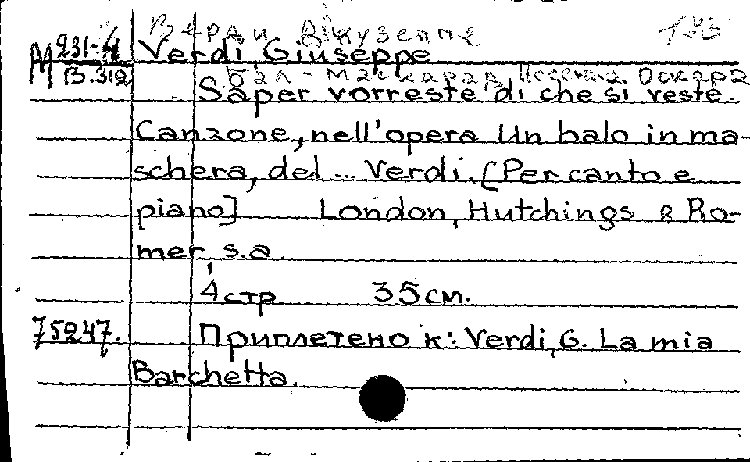 Верди Джузеппе 135
М 231-4 Verdi, Giuseppe
В.312 Бал-маскарад. Песенка Оскара
Saper vorreste di che si veste.
Canzone, nell'opera Un balo in ma-
schera, del ... Verdi. [Per canto e
piano] London, Hutchings & Ro-
mer s.a.
4 стр 35 см.
75247. Приплетено к: Verdi, G. La mia
Barchetta.